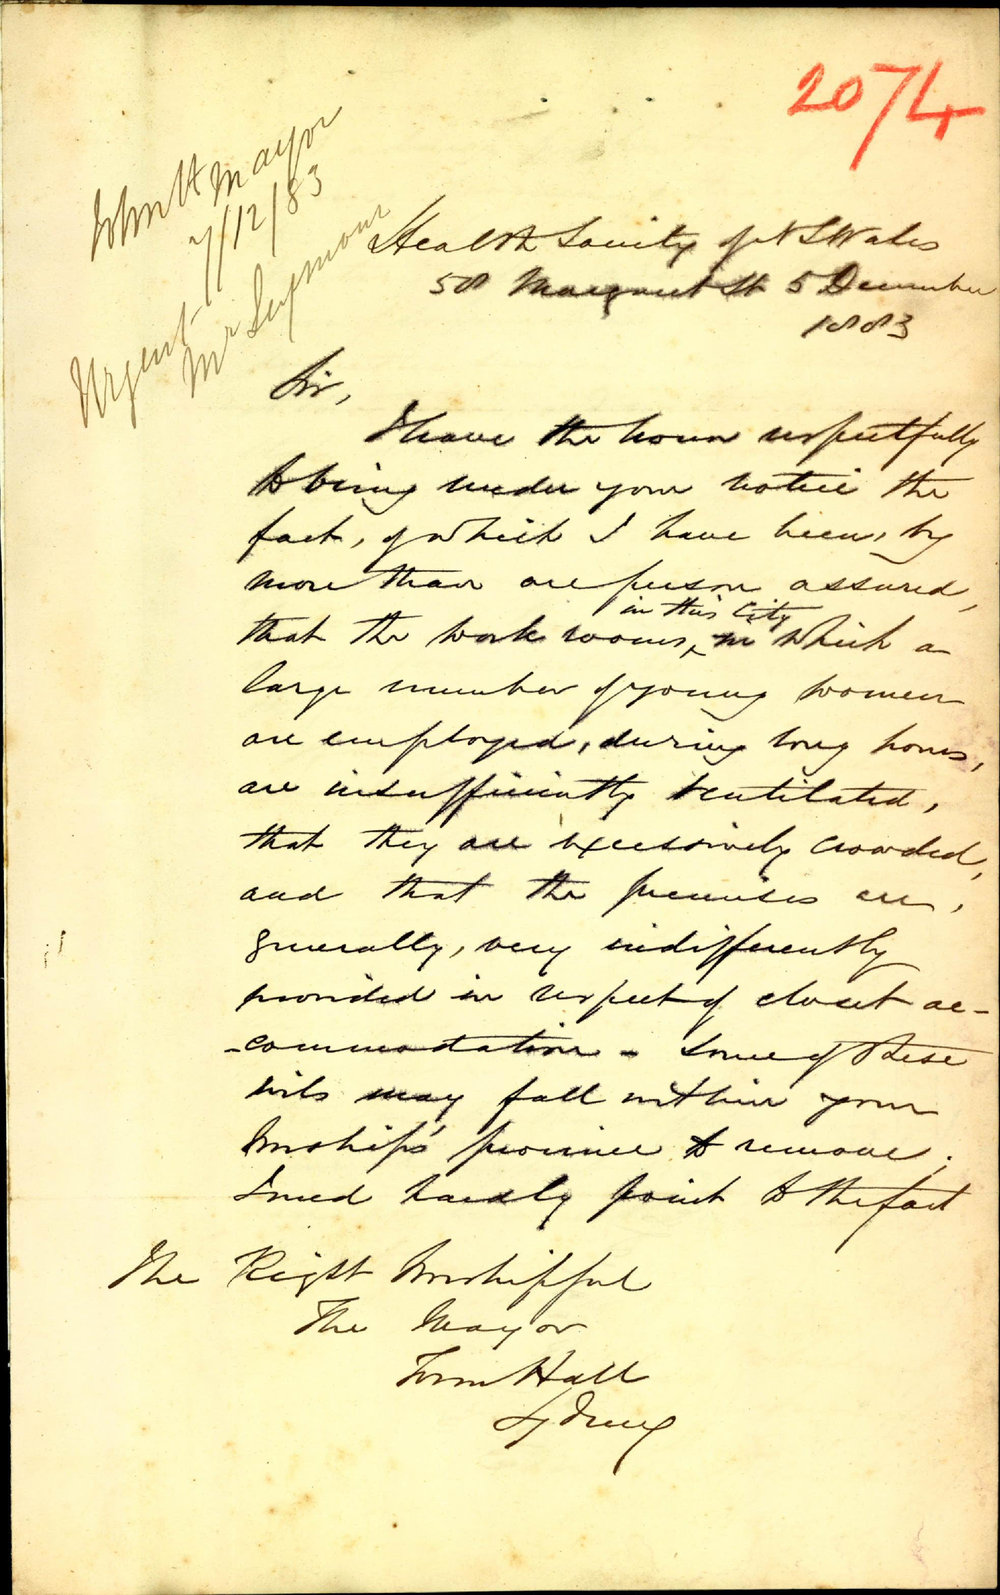 2074
John H Mayor
7/12/83
Urgent
Mr Seymour
Health Society of N S Wales
58 Margaret St 5 December
1883
Sir,
I have the honor respectfully
to bring under your notice the
fact, of which I have been, by
more than one person assured,
that the work rooms, in this City in which a
large number of young women
are employed, during long hours,
are insufficiently ventilated,
that they are excessively crowded,
and that the premises are,
generally, very indifferently
provided in respect of closet ac-
-commodation - Some of these
evils may fall within your
Worship's province to remove.
I need hardly point to the fact
The Right Worshipful
The Mayor
Town Hall
Sydney